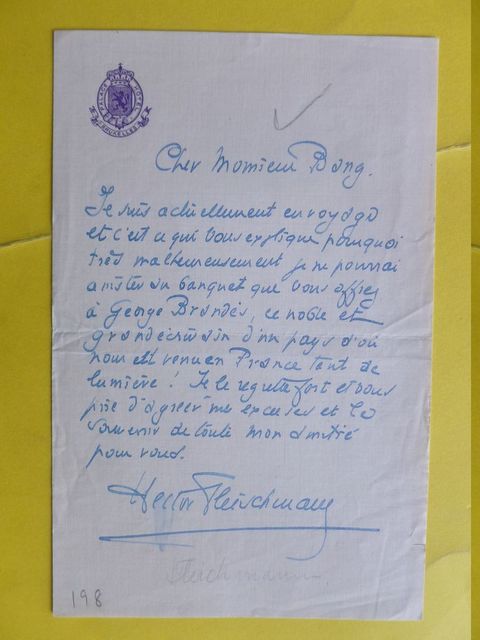 PALACE HOTEL
BRUXELLES
Cher Monsieur Bang.
Je suis actuellement en voyage
et c'est ce qui vous explique pourquoi
très malheureusement je ne pourrai
assister au banquet que vous offrez
à George Brandès, ce noble et
grand écrivain d'un pays d'où
nous est venu en France tant de
lumière! Je le regrette fort et vous
prie d'agréer mes excuses et le
souvenir de toute mon amitié
pour vous.
Hector Fleischmann
Fleischmann
198